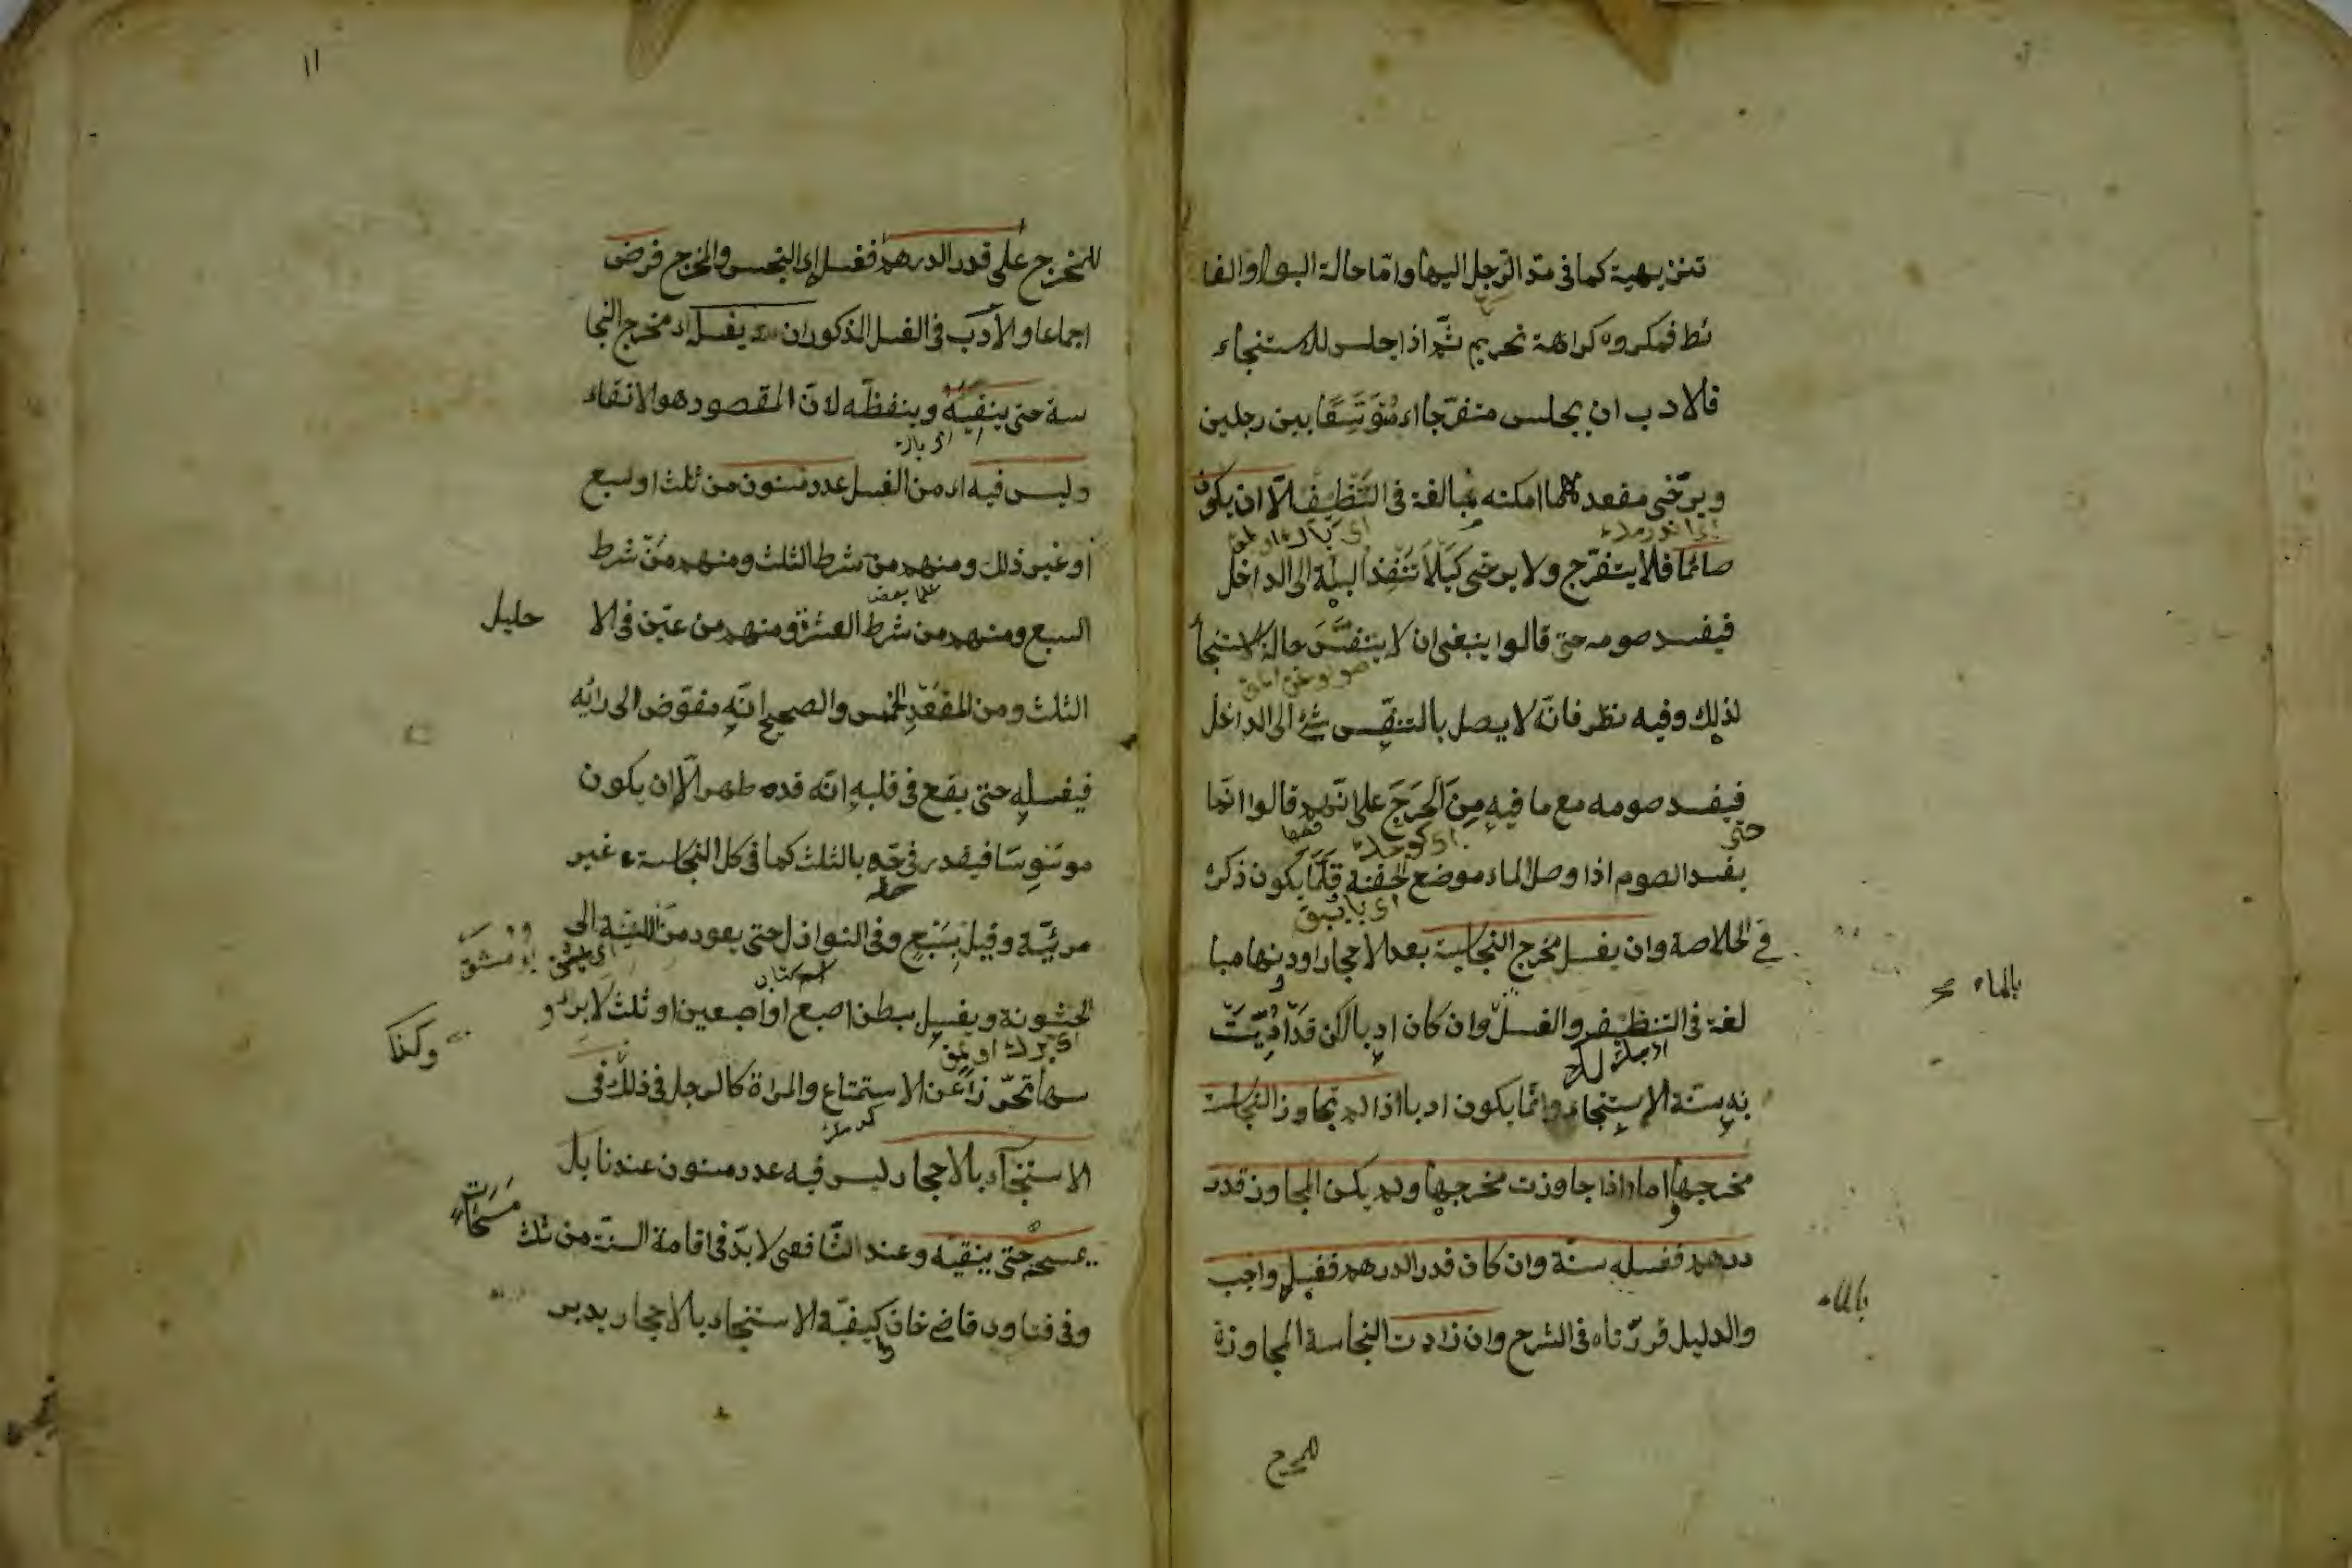 تنزيهية كما في مدّ الرّجل اليها وامّا حالة البول والغا
ئط فمكروه كراهة تحريم ثمّ اذا جلس للاستنجاء
فالادب ان يجلس متفرّجا اى متوسّعًا بين رجلين
ويرخى مقعده مهما امكنه مبالغة في التنظيف الّا ان يكون
صائما فلا يتفرّج ولا يرخى كيلا تنفذ البلة الى الداخل
فيفسد صومه حتى قالوا ينبغى ان لا يتنفّس حالة الاستنجا
لذلك وفيه نظر فانّه لا يصل بالتنفّس شئ الى الداخل
فيفسد صومه مع ما فيه من الحرج على انّهم قالوا انّما
حتى
يفسد الصوم اذا وصل الماء موضع الحقنة وقلّما يكون ذكره
في الخلاصة وان يغسل مخرج النجاسة بعد الاحجار او دونها مبا
بالماء
لغة في التنظيف والغسل وان كان ادبا لكن قد ادّيت
به سنّة الاستنجاء وانّما يكون ادبا اذا لم يتجاوز النجاسة
مخرجها واما اذا جاوزت مخرجها ولم يكن المجاوز قدر
درهم فغسله سنّة وان كان قدر الدرهم فغسله واجب
بالماء
والدليل قرّرناه في الشرح وان زادت النجاسة المجاوزة
للمخرج
١١
للمخرج على قدر الدرهم فغسل اى النجس والمخرج فرض
اجماعا والادب في الغسل المذكور ان يغسل اى مخرج النجا
سة حتى ينقيه وينظفه لانّ المقصود هو الانقاء
وليس فيه اى من الغسل عدد مسنون من ثلث او سبع
او غير ذلك ومنهم من شرط الثلث ومنهم من شرط
السبع ومنهم من شرط العشرة ومنهم من عيّن في الا
حليل
الثلث ومن المقعد الخمس والصحيح انّه مفوّض الى رائه
فيغسله حتى يقع في قلبه انّه قد طهر الّا ان يكون
موسوسا فيقدر في حقّه بالثلث كما في كل النجاسة غير
مرئيّة وقيل بسبع وفي النوازل حتى يعود من اللينة الى
الخشونة ويغسل ببطن اصبع او اصبعين او ثلث لا برؤ
وكذا
سها تحرّزا عن الاستمتاع والمراة كالرجل في ذلك في
الاستنجاء بالاحجار ليس فيه عدد مسنون عندنا بل
يمسح حتى ينقيه وعند الشافعى لا بدّ في اقامة السنّة من ثلث
مسحات
وفي فتاوى قاضى خان كيفيّة الاستنجاء بالاحجار يدبر